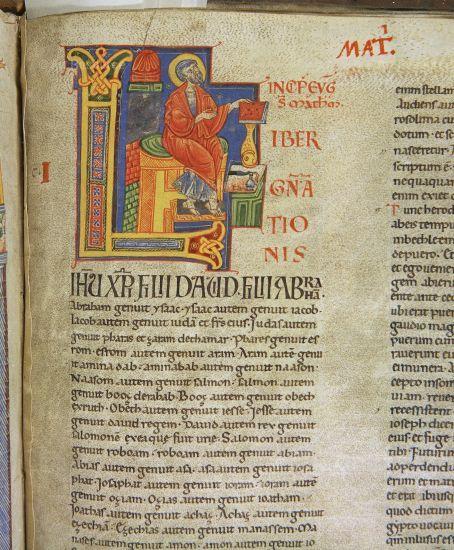 MAT. I
INCP EVG
S. MATHM.
LIBER
GNA
TIO
NIS
I
IHU XPI FILII DAVID. FILII ABRA
HA.
Abraham genuit ysaac. ysaac autem genuit iacob.
Iacob autem genuit iudam et frs eius. Iudas autem
genuit phares et zaram dethamar. Phares genuit es
rom. esrom autem genuit aram. Aram aute genu
it aminadab. aminadab autem genuit naason.
Naasom autem genuit salmon. Salmon autem
genuit booz derahab. Booz autem genuit obeth
exruth. Obeth autem genuit iesse. Iesse autem
genuit dauid regem. Dauid autem rex genuit
salomone exea que fuit urie. Salomon autem
genuit roboam. roboam autem genuit abiam.
Abias autem genuit asa. asa autem genuit iosa
phat. Iosaphat autem genuit ioram. ioram aute
genuit oziam. Ozias autem genuit ioatham.
Ioathas autem genuit achaz. Achaz autem genuit
ezechia. Ezechias autem genuit manassem. Ma
nases autem genuit amon. amon autem genuit
enim stellam
Audiens aut
rosolima cu
dotum. et s
nasceretur.
scriptum e.
ne quaquam
enim exiet
Tunc herod
ab eis tempu
in bethleem
depuero. Et
gem abieru
ente ante ce
gaudio mag
puerum cum
rauerunt eu
et munera.
cepto insom
uiam. reuer
recessissent
ioseph dicen
eius et fuge
aoperdendu
et matrem
et erat ibi usq
quod dictum
gypto uocaui